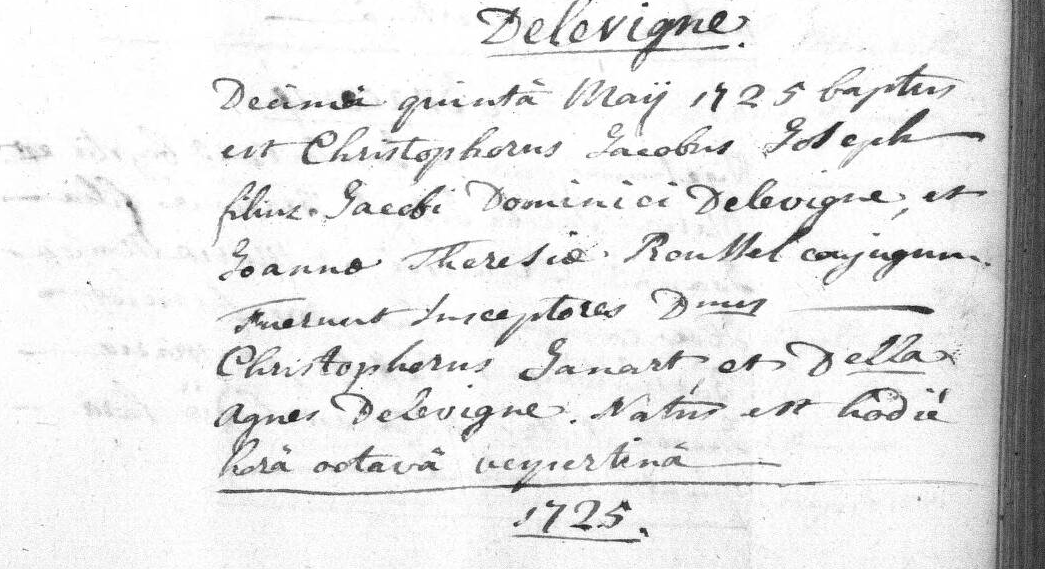 Delevigne.
Decimâ quintâ Maÿ 1725 baptus
est Christophorus Jacobus Joseph
filius Jacobi Dominici Delevigne, et
Joannæ Theresiæ Roussel conjugum.
Fuerunt Susceptores Dnus
Christophorus Ganart et Della
Agnes Delevigne. Natus est hodiè
horâ octavâ vespertinâ
1725.